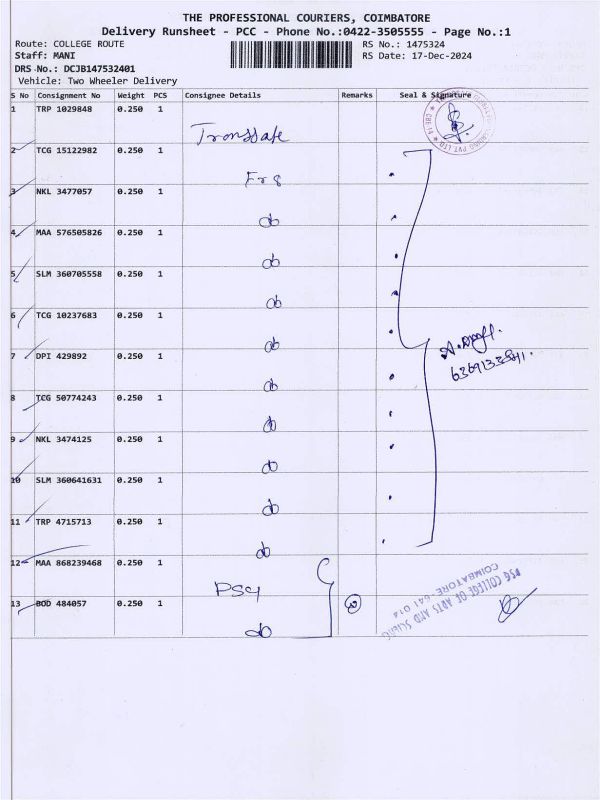 THE PROFESSIONAL COURIERS, COIMBATORE
Delivery Runsheet - PCC - Phone No.:0422-3505555 - Page No.:1
Route: COLLEGE ROUTE RS No.: 1475324
Staff: MANI RS Date: 17-Dec-2024
DRS No.: DCJB147532401
Vehicle: Two Wheeler Delivery
S No Consignment No Weight PCS Consignee Details Remarks Seal & Signature
1 TRP 1029848 0.250 1
2 TCG 15122982 0.250 1
3 NKL 3477057 0.250 1
4 MAA 576505826 0.250 1
5 SLM 360705558 0.250 1
6 TCG 10237683 0.250 1
7 DPI 429892 0.250 1
8 TCG 50774243 0.250 1
9 NKL 3474125 0.250 1
10 SLM 360641631 0.250 1
11 TRP 4715713 0.250 1
12 MAA 868239468 0.250 1
PSG
13 BOD 484057 0.250 1
2
PSG COLLEGE OF ARTS AND SCIENC
COIMBATORE-641 014